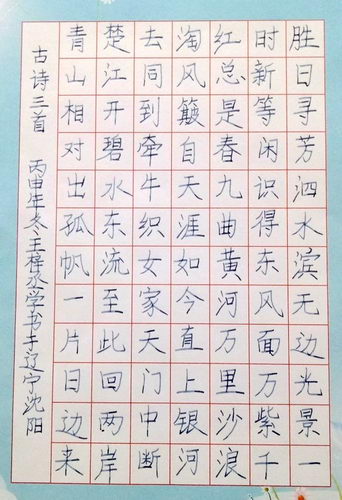 胜日寻芳泗水滨无边光景一
时新等闲识得东风面万紫千
红总是春九曲黄河万里沙浪
淘风簸自天涯如今直上银河
去同到牵牛织女家天门中断
楚江开碧水东流至此回两岸
青山相对出孤帆一片日边来
古诗三首 丙申年冬王梓丞学书于辽宁沈阳